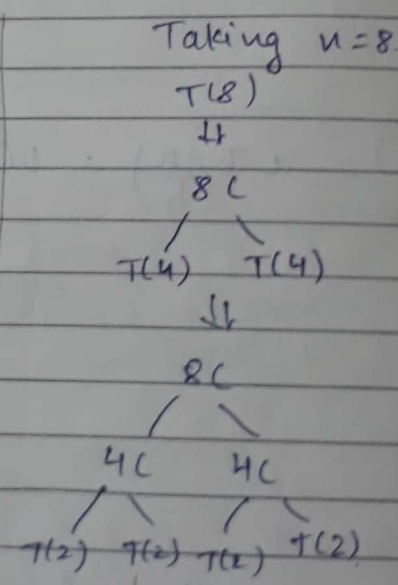 Taking n=8
T(8)
8C
T(4) T(4)
8C
4C 4C
T(2) T(2) T(2) T(2)